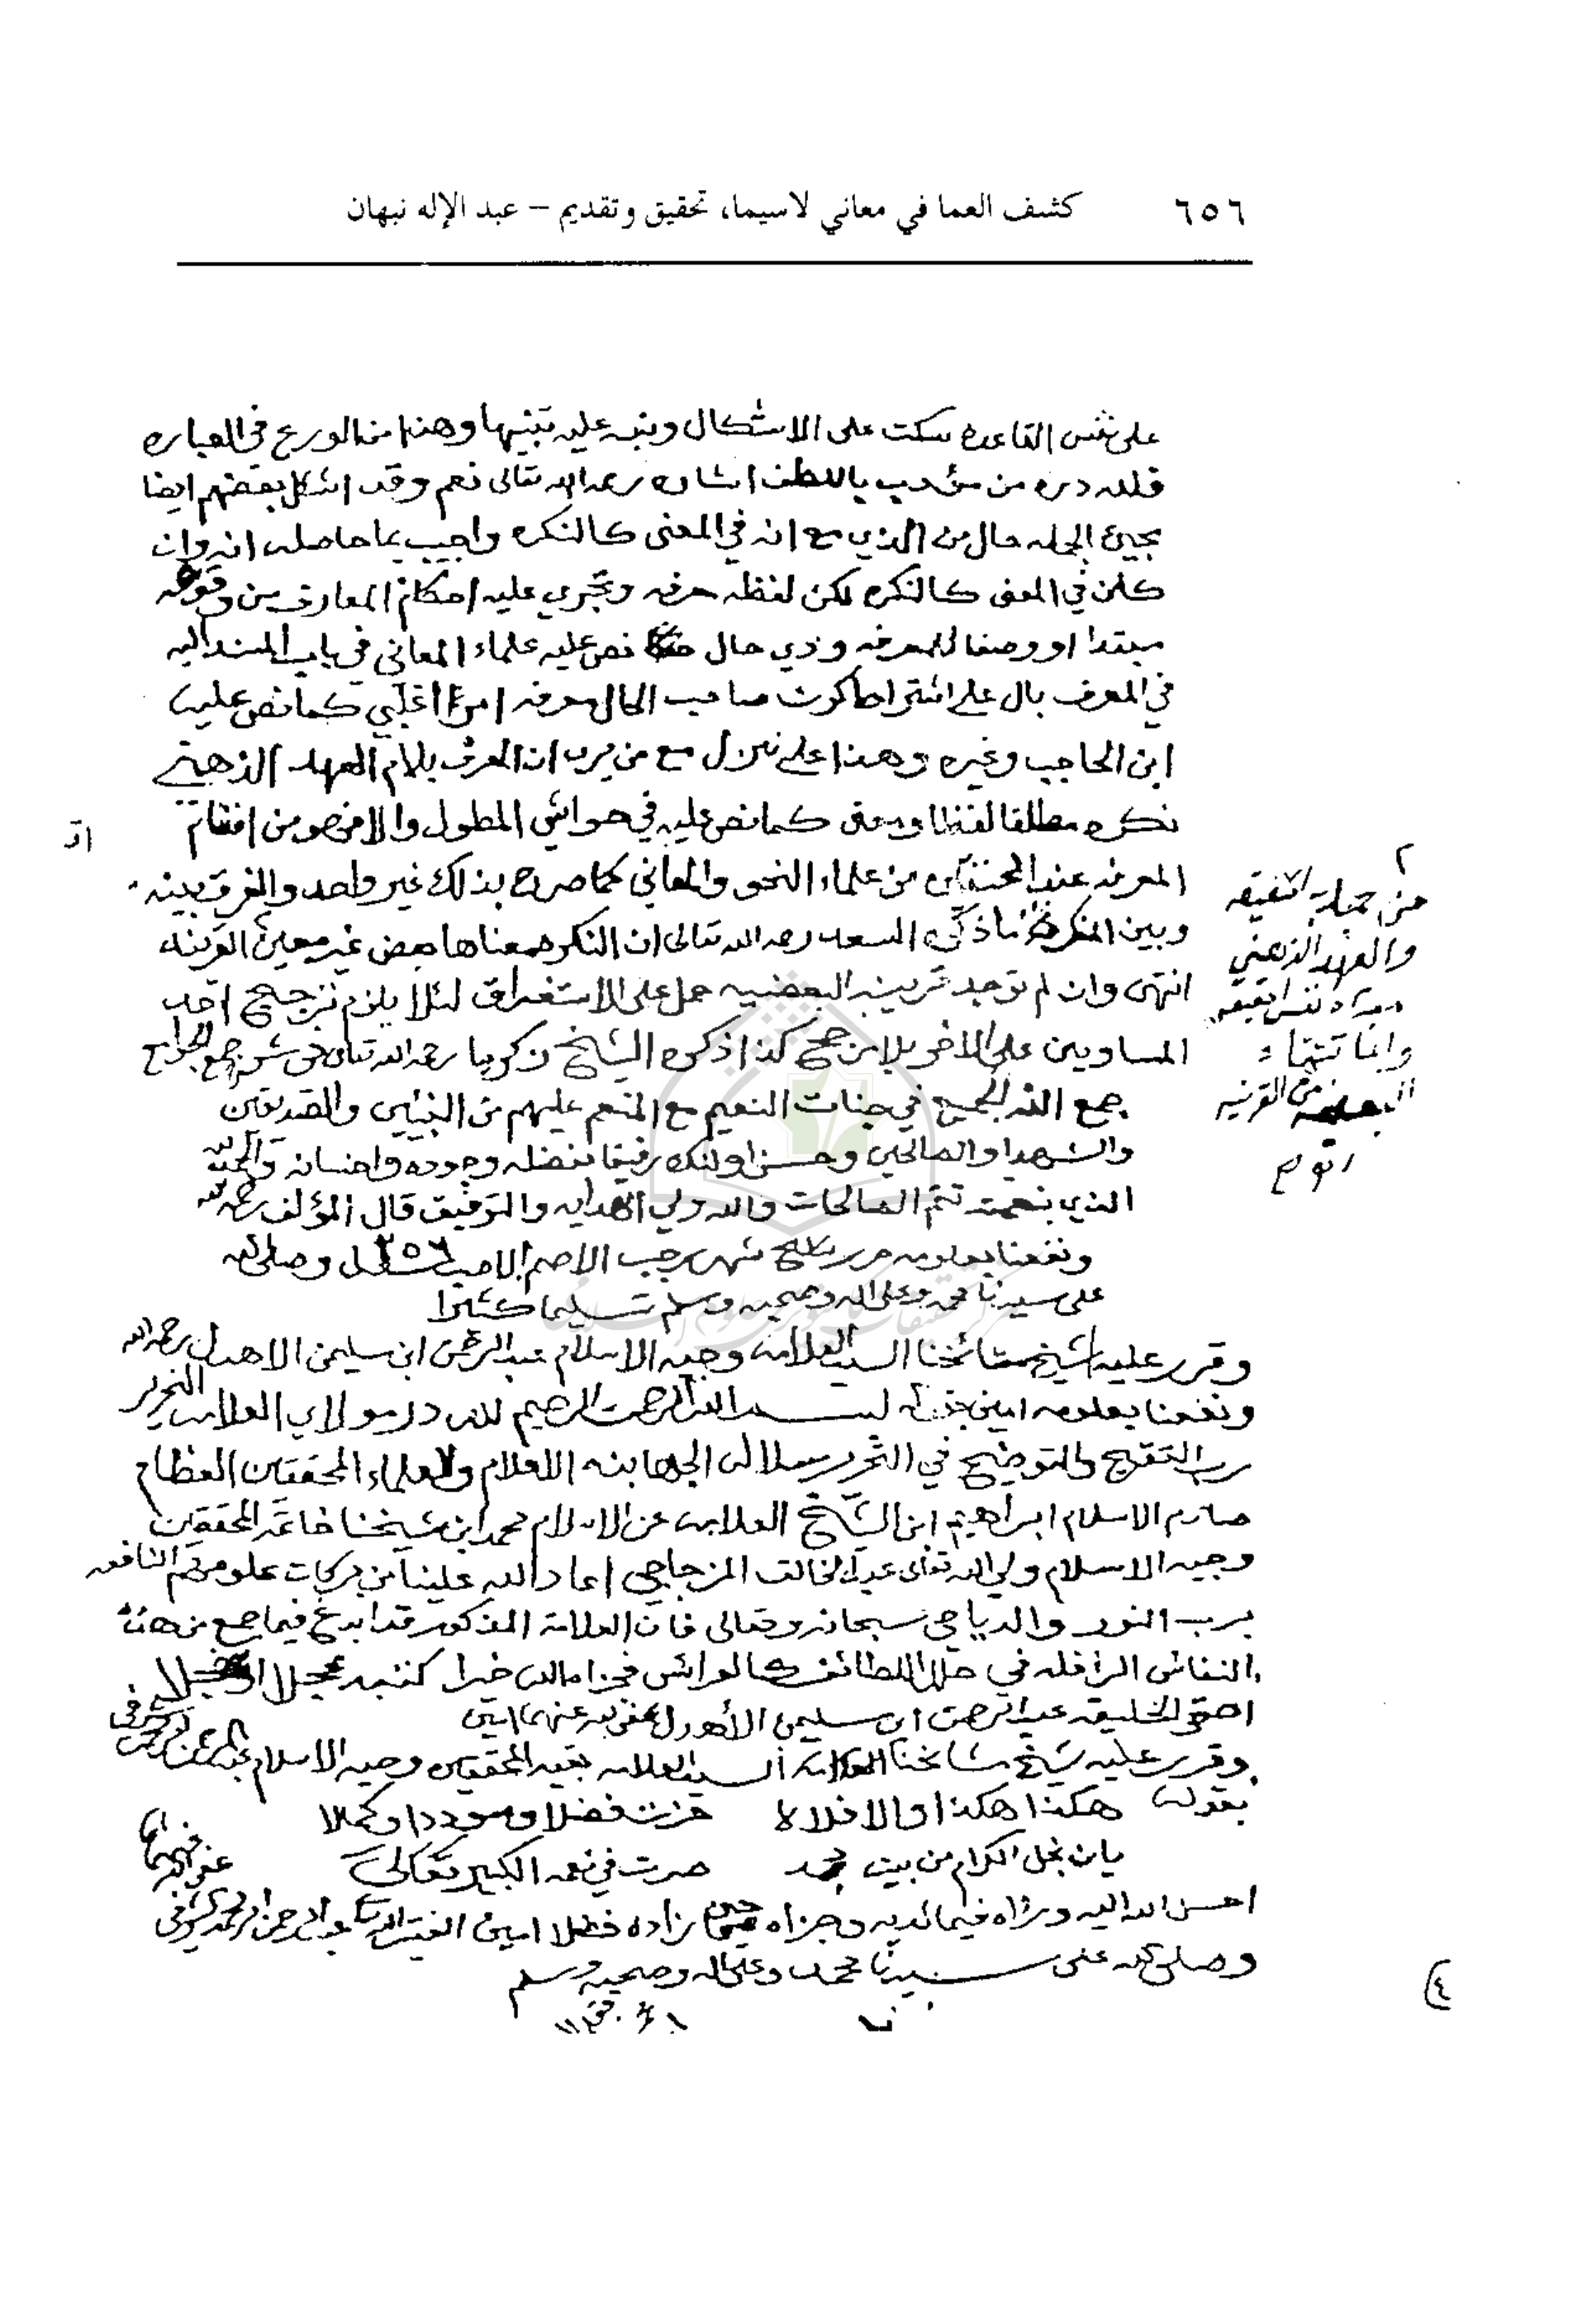 ٦٥٦ كشف العما في معاني لاسيما، تحقيق وتقديم – عبد الإله نبهان
على نفس القاعدة سكت على الاشكال ونبه عليه تنبيها وهذا من الورع في العباره
فلله دره من مؤدب باللطف اشاره رحمه الله تعالى نعم وقد اشكل بعضهم ايضا
بمجيئ الجمله حال من الذي مع انه في المعنى كالنكره واجيب بما حاصله انه وان
كان في المعنى كالنكره لكن لفظه معرفه وتجري عليه احكام المعارف من وقوعه
مبتدا او وصفا للمعرفه وذي حال نص عليه علماء المعاني في باب المسند اليه
في المعرف بال على اشتراط كون صاحب الحال معرفه امر اغلبي كما نص عليه
ابن الحاجب وغيره وهذا على تنزل مع من يرى ان المعرف بلام العهد الذهني
نكره مطلقا لفظا ومعنى كما نص عليه في حواشي المطول والا فهو من اقسام
المعرفه عند المحققين من علماء النحو والمعاني كما صرح بذلك غير واحد والفرق بينه
وبين النكرة ما ذكره السعد رحمه الله تعالى ان النكره معناها بعض غير معين القرينه
انتهى وان لم توجد قرينه البعضيه حمل على الاستغراق لئلا يلزم ترجيح احد
المساويين على الاخر بلا مرجح كذا ذكره الشيخ زكريا رحمه الله تعالى في شرح جمع الجوامع
جمع الله الجميع في جنات النعيم مع المنعم عليهم من النبيين والصديقين
والشهدا والصالحين وحسن اولئك رفيقا بفضله وجوده واحسانه والحمد لله
الذي بنعمته تتم الصالحات والله ولي الهدايه والتوفيق قال المؤلف رحمه الله
ونفعنا بعلومه حرر شهر رجب الاصم الاصب وصلى الله
على سيدنا محمد وعلى اله وصحبه وسلم تسليما كثيرا
وقرر عليه شيخ مشائخنا السيد العلامه وجيه الاسلام عبد الرحمن ابن سليمن الاهدل رحمه الله
ونفعنا بعلومه امين بسم الله الرحمن الرحيم لله در مولاي العلامه النحرير
رب التنقيح والتوضيح في التحرير سلالة الجهابذه الاعلام والعلماء المحققين العظام
صارم الاسلام ابراهيم ابن الشيخ العلامه عز الاسلام محمد ابن شيخنا خاتمة المحققين
وجيه الاسلام ولي الله تعالى عبد الخالق المزجاجي اعاد الله علينا من بركات علومهم النافعه
برب النور والدياجي سبحانه وتعالى فان العلامة المذكور قد ابدع فيما جمع من هذه
النفائس الرافله في حلل اللطائف كالعرائس فجزاه الله خيرا كتبه عجلا
احقر الخليقه عبد الرحمن ابن سليمن الأهدل عفى الله عنهما امين
وقرر عليه شيخ مشائخنا السيد العلامه بقية المحققين وجيه الاسلام
بقوله هكذا هكذا والا فلا لا حزت فضلا وسوددا وكمالا
يا ابن نجل الكرام من بيت مجد صرت في نعمه الكبير تعالى
احسن الله اليه وجزاه خيرا زاده فضلا امين الفقير
وصلى الله على سيدنا محمد وعلى اله وصحبه وسلم
والعهد الذهني
وانما تنتهاء
من القرينه
٤